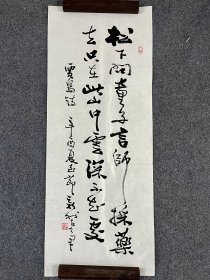 松下問童子言師採藥
去只在此山中雲深不知處
賈島詩 辛酉夏